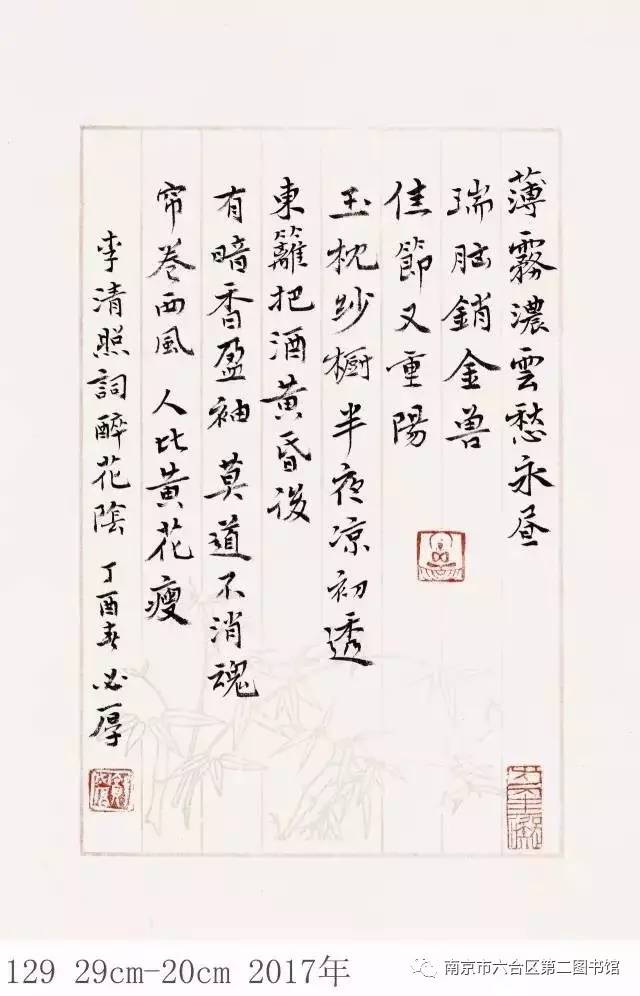 薄霧濃雲愁永昼
瑞脑銷金兽
佳節又重陽
玉枕纱橱半夜凉初透
東籬把酒黄昏後
有暗香盈袖 莫道不消魂
帘卷西風 人比黄花瘦
李清照詞醉花陰 丁酉春 必厚
129 29cm-20cm 2017年
南京市六合区第二图书馆